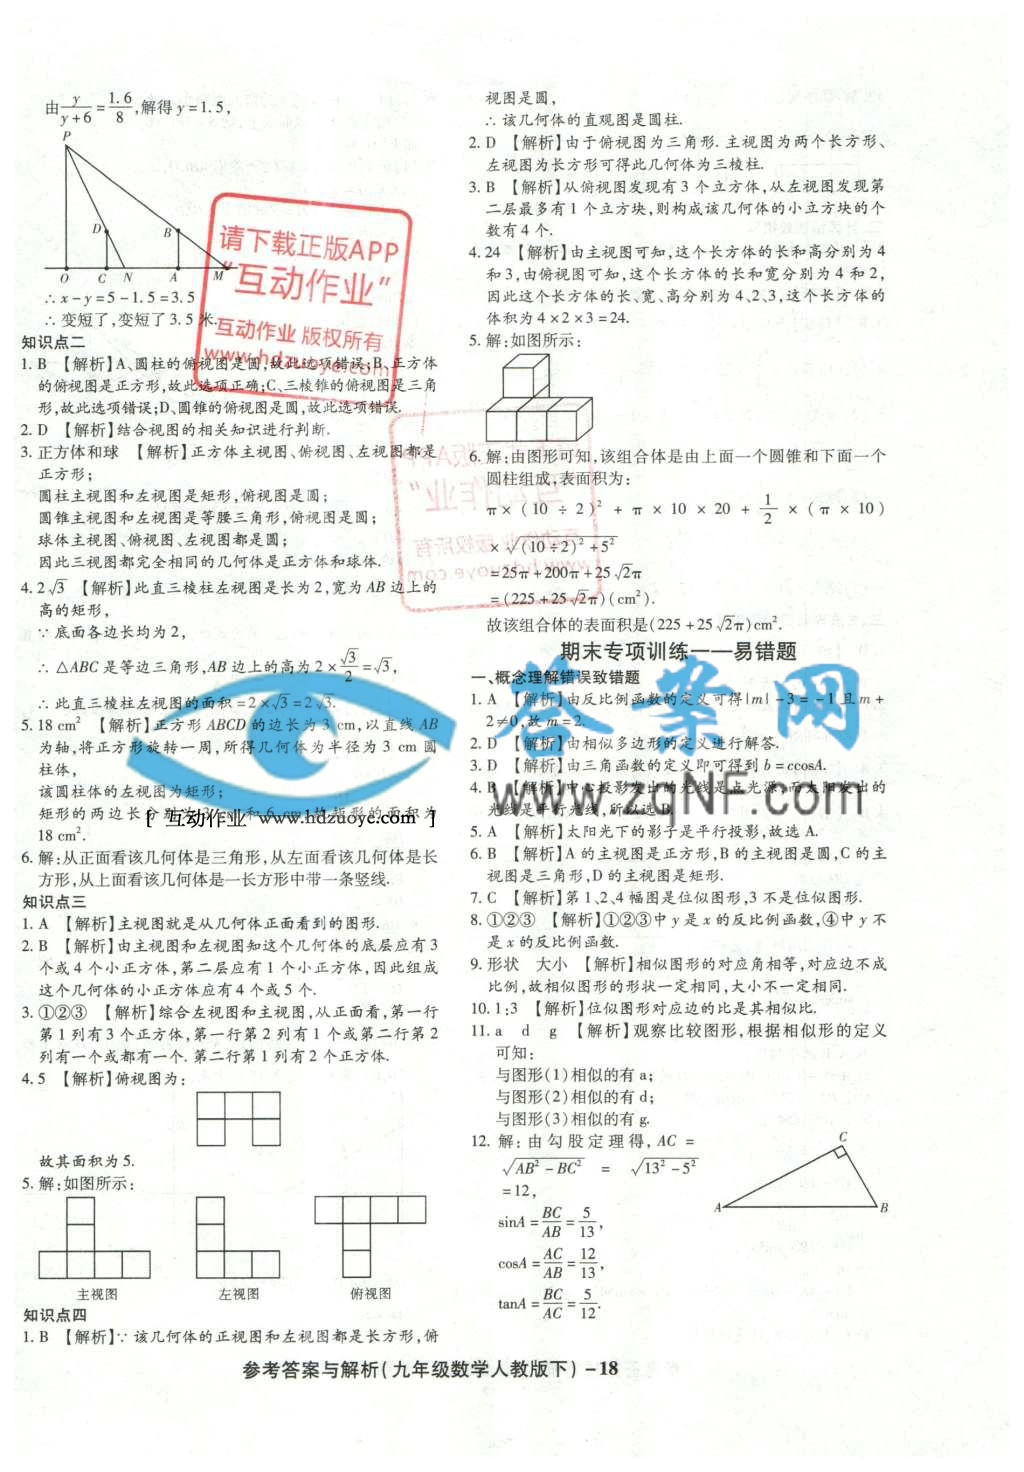 由y/(y+6)=1.6/8,解得y=1.5,
P
D
B
O C N A M
∴x-y=5-1.5=3.5
∴变短了,变短了3.5米.
知识点二
1. B 【解析】A、圆柱的俯视图是圆,故此选项错误;B、正方体
的俯视图是正方形,故此选项正确;C、三棱锥的俯视图是三角
形,故此选项错误;D、圆锥的俯视图是圆,故此选项错误.
2. D 【解析】结合视图的相关知识进行判断.
3. 正方体和球 【解析】正方体主视图、俯视图、左视图都是
正方形;
圆柱主视图和左视图是矩形,俯视图是圆;
圆锥主视图和左视图是等腰三角形,俯视图是圆;
球体主视图、俯视图、左视图都是圆;
因此三视图都完全相同的几何体是正方体和球体.
4. 2√3 【解析】此直三棱柱左视图是长为2,宽为AB边上的
高的矩形,
∵底面各边长均为2,
∴△ABC是等边三角形,AB边上的高为2×√3/2=√3,
∴此直三棱柱左视图的面积=2×√3=2√3.
5. 18 cm² 【解析】正方形ABCD的边长为3 cm,以直线AB
为轴,将正方形旋转一周,所得几何体为半径为3 cm圆
柱体,
该圆柱体的左视图为矩形;
矩形的两边长分别为3 cm和6 cm,故矩形的面积为
[ 互动作业 www.hdzuoye.com ]
18 cm².
6. 解:从正面看该几何体是三角形,从左面看该几何体是长
方形,从上面看该几何体是一长方形中带一条竖线.
知识点三
1. A 【解析】主视图就是从几何体正面看到的图形.
2. B 【解析】由主视图和左视图知这个几何体的底层应有3
个或4个小正方体,第二层应有1个小正方体,因此组成
这个几何体的小正方体应有4个或5个.
3. ①②③ 【解析】综合左视图和主视图,从正面看,第一行
第1列有3个正方体,第一行第2列有1个或第二行第2
列有一个或都有一个.第二行第1列有2个正方体.
4. 5 【解析】俯视图为:
故其面积为5.
5. 解:如图所示:
主视图 左视图 俯视图
知识点四
1. B 【解析】∵该几何体的正视图和左视图都是长方形,俯
视图是圆,
∴该几何体的直观图是圆柱.
2. D 【解析】由于俯视图为三角形.主视图为两个长方形、
左视图为长方形可得此几何体为三棱柱.
3. B 【解析】从俯视图发现有3个立方体,从左视图发现第
二层最多有1个立方块,则构成该几何体的小立方块的个
数有4个.
4. 24 【解析】由主视图可知,这个长方体的长和高分别为4
和3,由俯视图可知,这个长方体的长和宽分别为4和2,
因此这个长方体的长、宽、高分别为4、2、3,这个长方体的
体积为4×2×3=24.
5. 解:如图所示:
6. 解:由图形可知,该组合体是由上面一个圆锥和下面一个
圆柱组成,表面积为:
π×(10÷2)²+π×10×20+1/2×(π×10)
×√((10÷2)²+5²)
=25π+200π+25√2π
=(225+25√2π)(cm²).
故该组合体的表面积是(225+25√2π)cm².
期末专项训练——易错题
一、概念理解错误致错题
1. A 【解析】由反比例函数的定义可得|m|-3=-1且m+
2≠0,故m=2.
2. D 【解析】由相似多边形的定义进行解答.
3. D 【解析】由三角函数的定义即可得到b=ccosA.
4. B 【解析】中心投影发出的光线是点光源,而太阳发出的
光线是平行光线,所以选B.
5. A 【解析】太阳光下的影子是平行投影,故选A.
6. B 【解析】A的主视图是正方形,B的主视图是圆,C的主
视图是三角形,D的主视图是矩形.
7. C 【解析】第1、2、4幅图是位似图形,3不是位似图形.
8. ①②③ 【解析】①②③中y是x的反比例函数,④中y不
是x的反比例函数.
9. 形状 大小 【解析】相似图形的对应角相等,对应边不成
比例,故相似图形的形状一定相同,大小不一定相同.
10. 1:3 【解析】位似图形对应边的比是其相似比.
11. a d g 【解析】观察比较图形,根据相似形的定义
可知:
与图形(1)相似的有a;
与图形(2)相似的有d;
与图形(3)相似的有g.
12. 解:由勾股定理得,AC=
√(AB²-BC²) = √(13²-5²)
=12,
sinA=BC/AB=5/13,
cosA=AC/AB=12/13,
tanA=BC/AC=5/12.
C
A B
请下载正版APP
“互动作业”
互动作业 版权所有
www.hdzuoye.com
答案网
www.qNF.com
参考答案与解析(九年级数学人教版下) -18